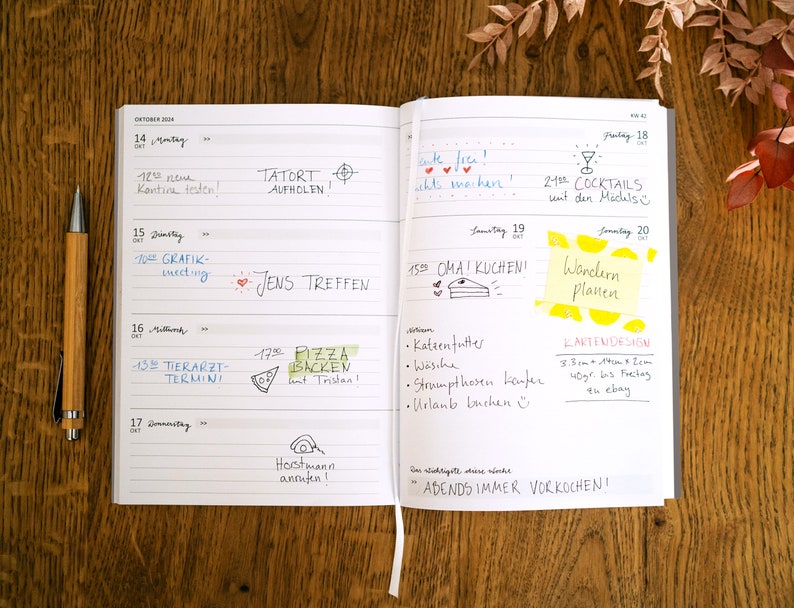 OKTOBER 2024
14 Montag >>
OKT
12⁰⁰ neue
Kantine testen!
TATORT
AUFHOLEN!
15 Dienstag >>
OKT
10⁰⁰ GRAFIK-
meeting
JENS TREFFEN
16 Mittwoch >>
OKT
13³⁰ TIERARZT-
TERMIN!
17⁰⁰ PIZZA
BACKEN
mit Tristan!
17 Donnerstag >>
OKT
Horstmann
anrufen!
KW 42
Freitag 18
OKT
frei!
machen!
21⁰⁰ COCKTAILS
mit den Mädels
Samstag 19
OKT
15⁰⁰ OMA! KUCHEN!
Sonntag 20
OKT
Wandern
planen
Notizen
• Katzenfutter
• Wäsche
• Strumpfhosen kaufen
• Urlaub buchen
KARTENDESIGN
3.3cm + 14cm x 2cm
40gr. bis Freitag
zu ebay
Das wichtigste diese Woche
>> ABENDS IMMER VORKOCHEN!